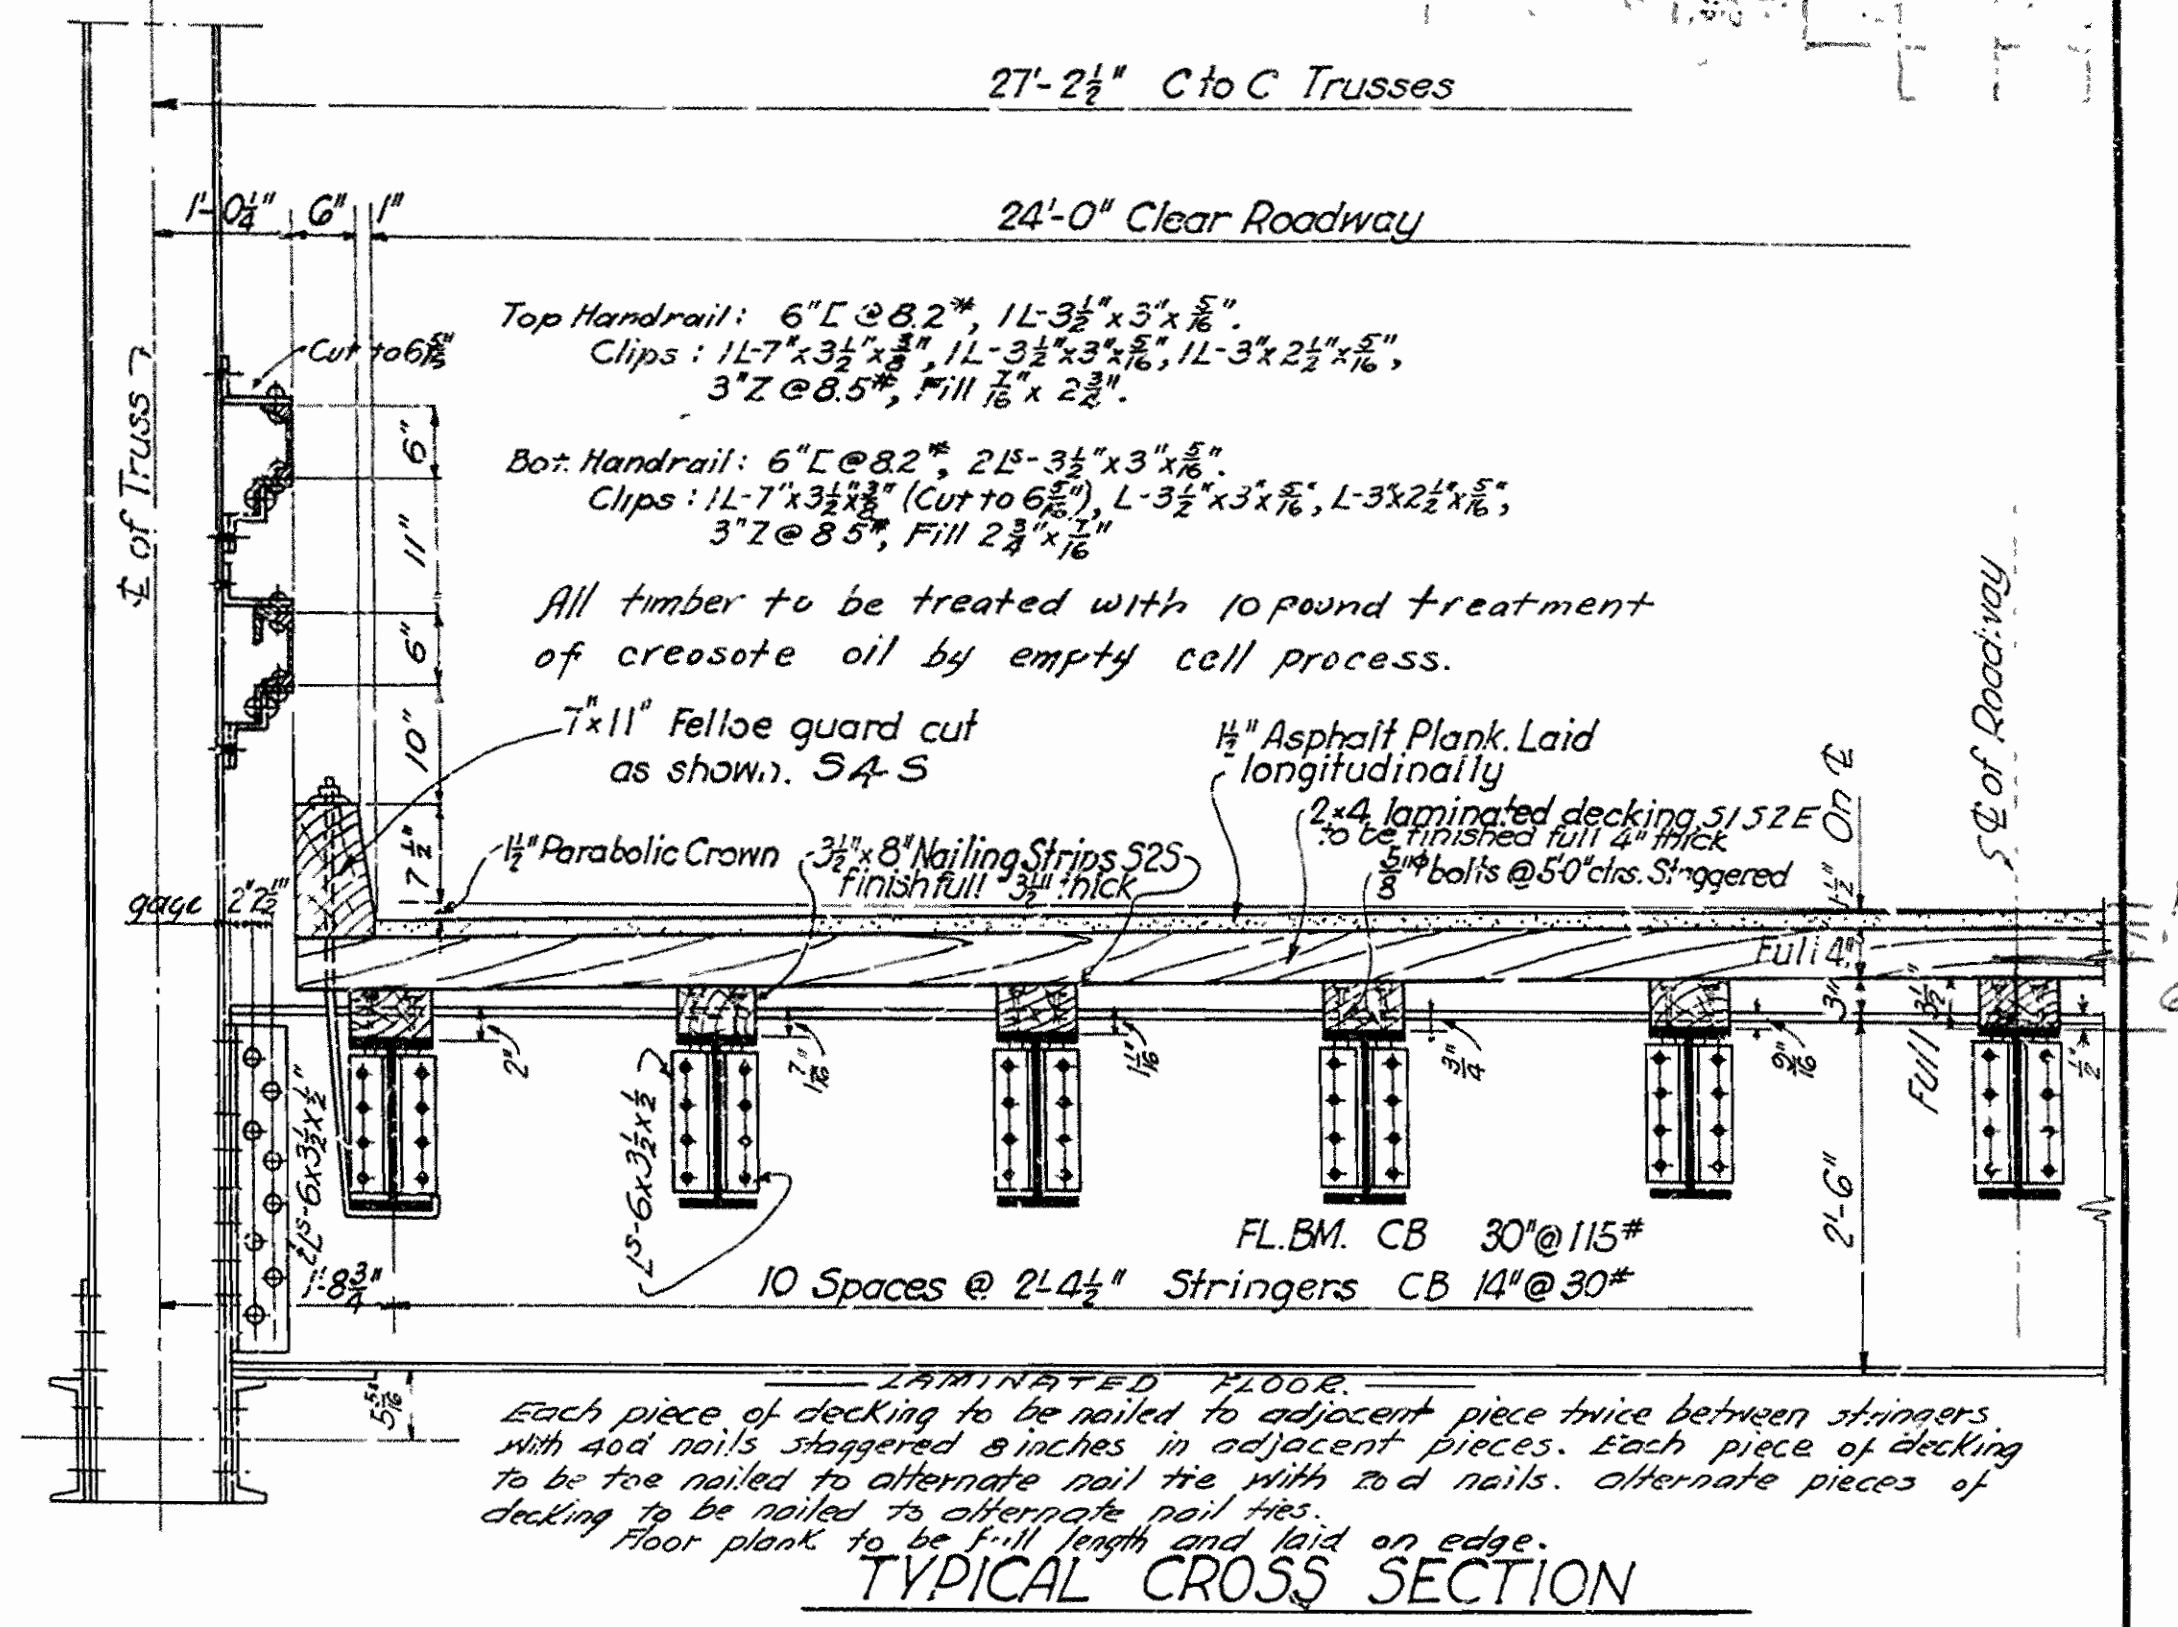 27'-2½" C to C Trusses
1'-0¼" 6" 1"
24'-0" Clear Roadway
Top Handrail: 6"[ @ 8.2#, 1L-3½"x3"x5/16".
Cut to 6 5/16"
Clips: 1L-7"x3½"x3/8", 1L-3½"x3"x5/16", 1L-3"x2½"x5/16",
3"Z@8.5#, Fill 7/16"x 2¾".
6"
Bot. Handrail: 6"[@8.2#, 2Ls-3½"x3"x5/16".
Clips: 1L-7"x3½"x3/8" (Cut to 6 5/16"), L-3½"x3"x5/16", L-3"x2½"x5/16",
3"Z@8.5#, Fill 2¾"x7/16"
11"
℄ of Truss
All timber to be treated with 10 pound treatment
of creosote oil by empty cell process.
6"
℄ of Roadway
7"x11" Felloe guard cut
as shown. S4S
10"
1½" Asphalt Plank. Laid
longitudinally
2x4 laminated decking, S1S2E
to be finished full 4" thick
5/8"φ bolts @ 5'-0" ctrs. Staggered
1½" On ℄
1½" Parabolic Crown
3½"x8" Nailing Strips S2S
finish full 3½" thick
7½"
gage 2" 2½"
Full 4"
3"
Full 3½"
2" 1 7/16" 1 1/16" 3/4" 9/16" ½"
2Ls-6x3½x½"
Ls-6x3½x½
2'-6"
FL.BM. CB 30"@115#
1'-8¾"
10 Spaces @ 2'-4½" Stringers CB 14"@30#
5 5/16"
LAMINATED FLOOR.
Each piece of decking to be nailed to adjacent piece twice between stringers
with 40d nails staggered 8 inches in adjacent pieces. Each piece of decking
to be toe nailed to alternate nail tie with 20d nails. alternate pieces of
decking to be nailed to alternate nail ties.
Floor plank to be full length and laid on edge.
TYPICAL CROSS SECTION